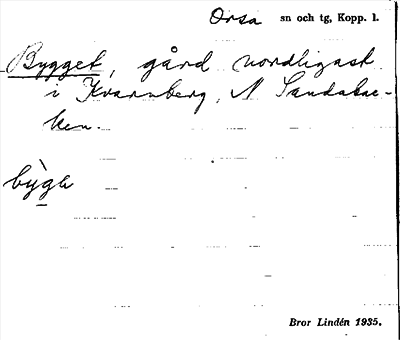 Orsa sn och tg, Kopp. l.
Bygget, gård nordligast
i Kvarnberg, N Sandabac-
ken.
Bror Lindén 1935.